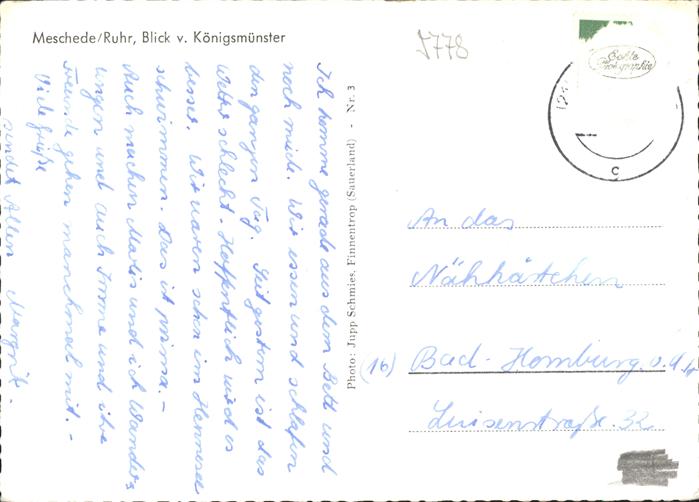 Meschede/Ruhr, Blick v. Königsmünster
5778
Echte Photographie
c
Ich komme gerade aus dem Bett und
noch müde. Wir essen und schlafen
den ganzen Tag. Seit gestern ist das
Wetter schlecht. Hoffentlich wird es
besser. Wir waren schon im Hennesee
schwimmen. Das ist prima. -
Auch machen Maris und ich Wander-
ungen und auch Imme und ihre
Freunde gehen manchmal mit. -
Viele Grüße
sendet Allen Margrit.
Photo: Jupp Schmies, Finnentrop (Sauerland) - Nr. 3
An das
Nähkästchen
(16) Bad-Homburg. v. d. H
Luisenstraße 32